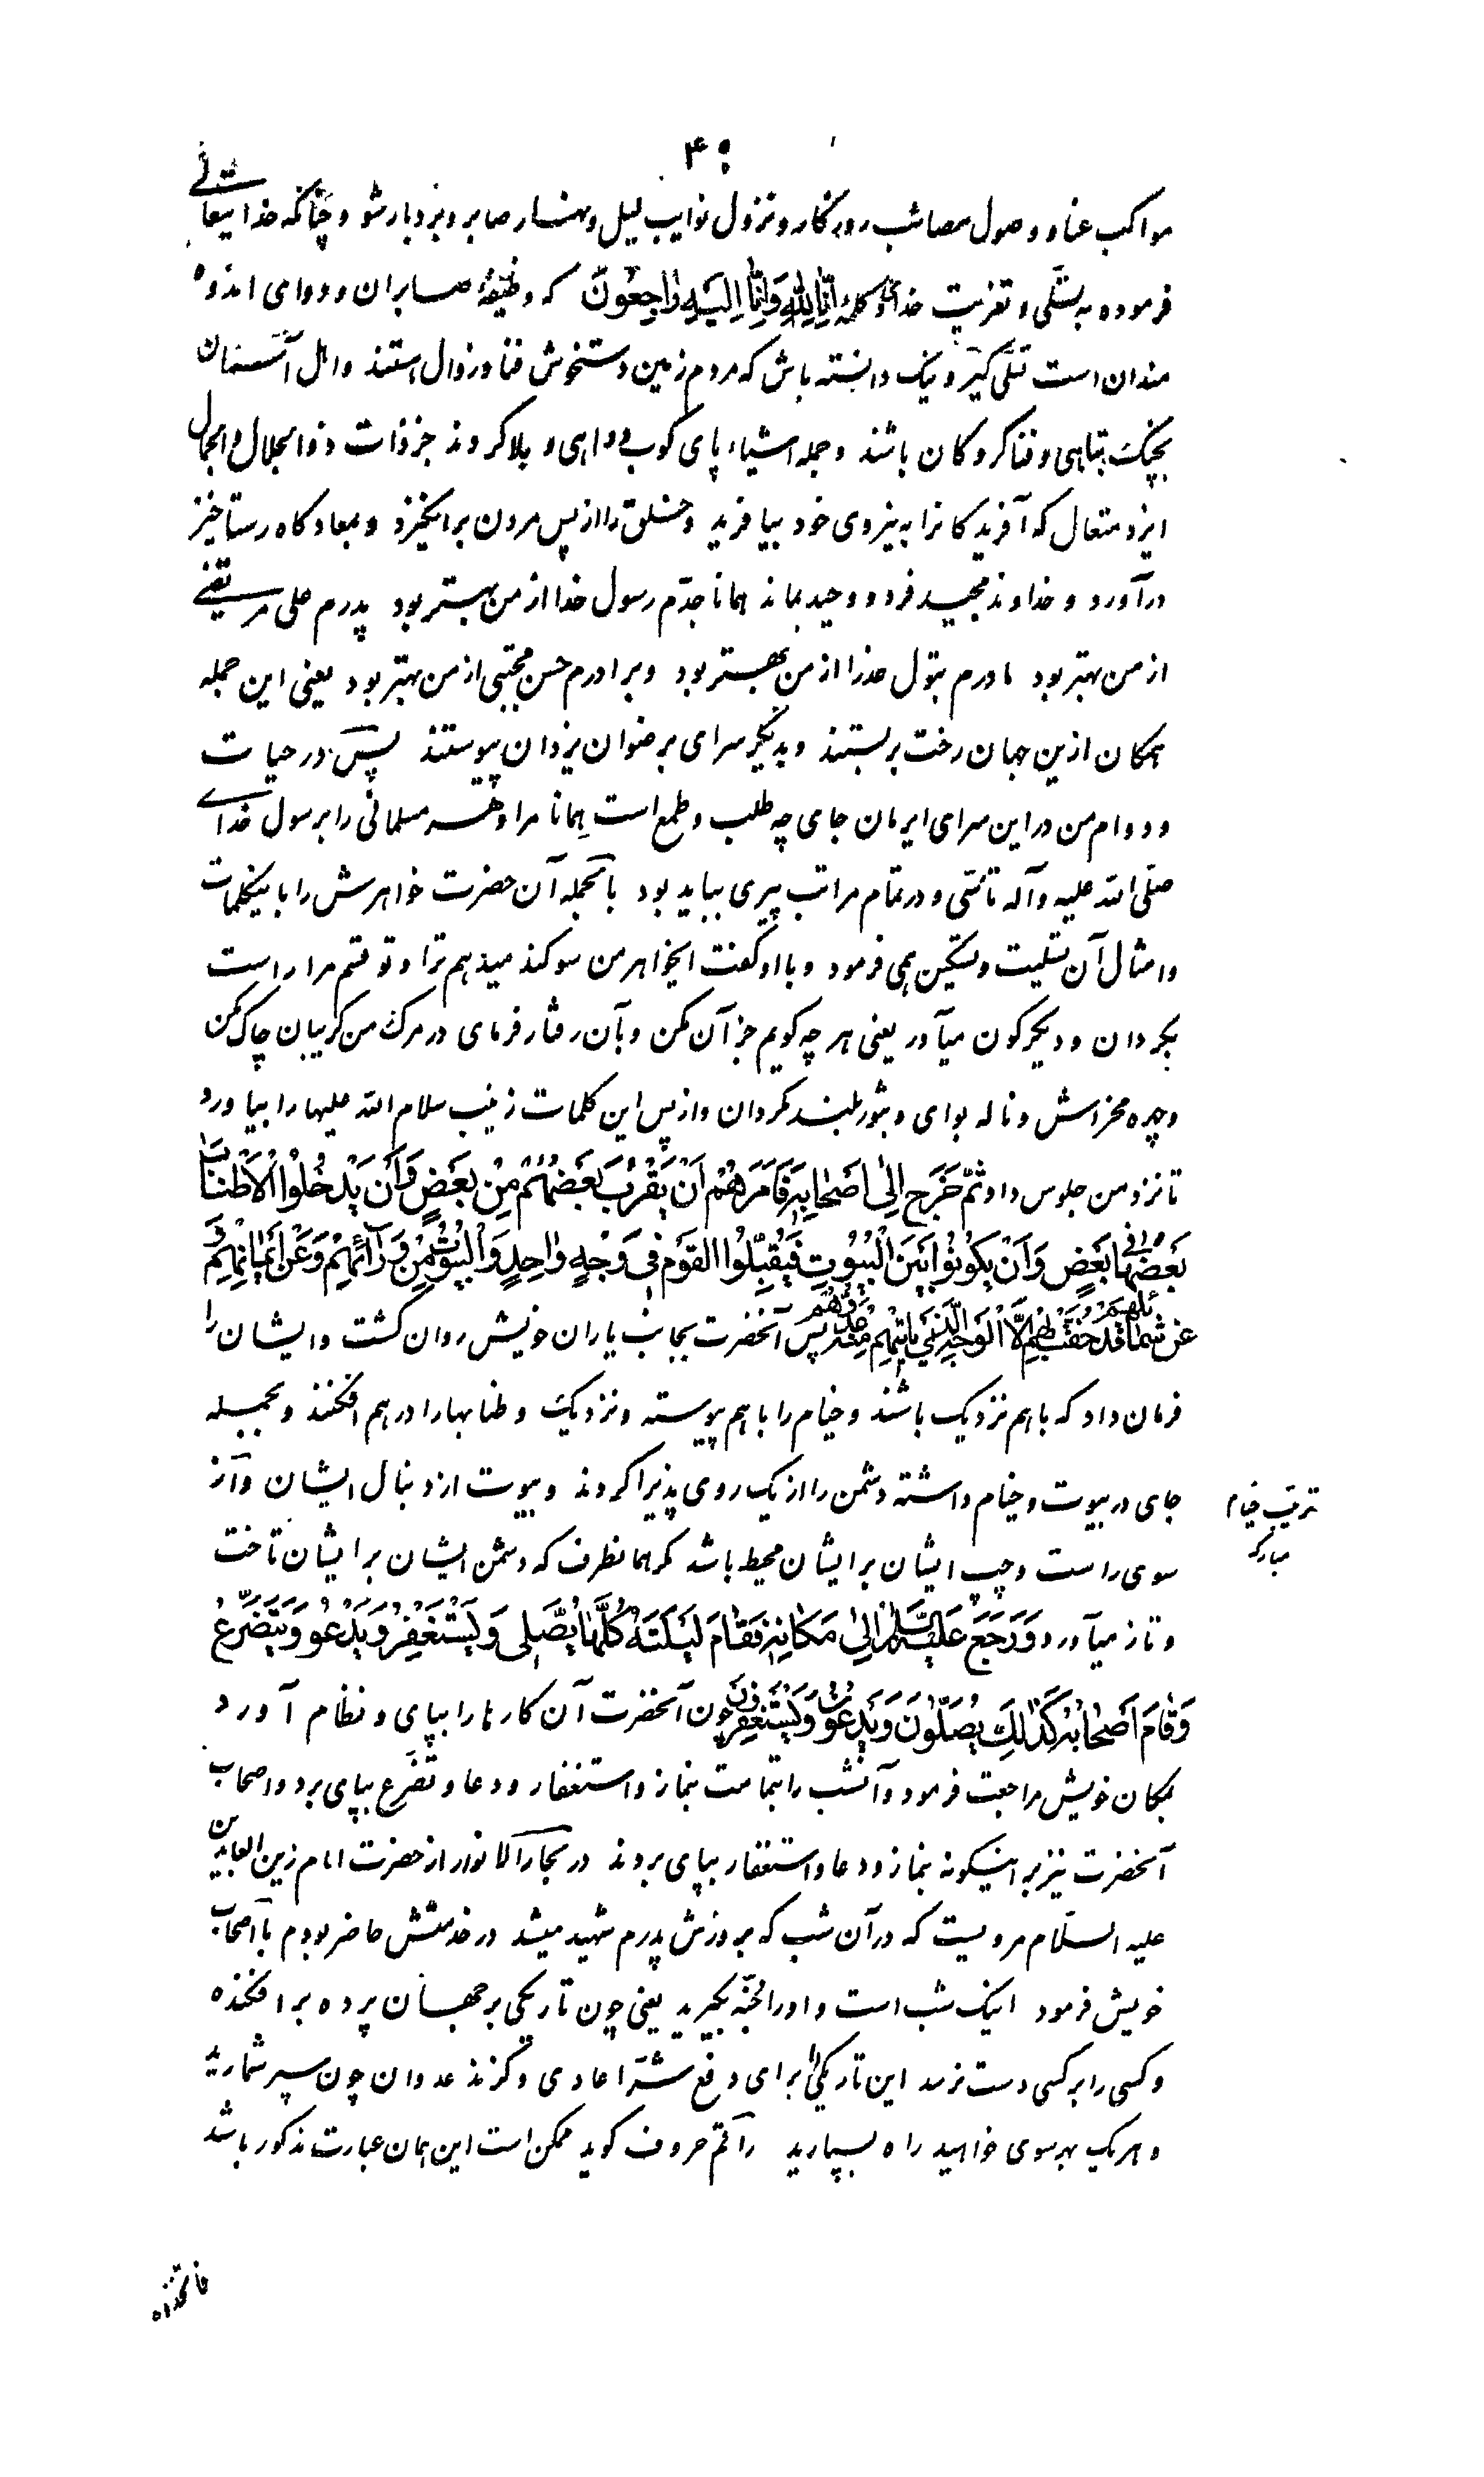 ۴۰
مواکب عنا و وصول مصائب روزگار و نزول نوایب لیل و نهار صابر و بردبار شو و چنانکه خدایتعالی
فرموده به تسلی و تعزیت خدای و کلمه اِنّا لِلّهِ وَاِنّا اِلَیهِ راجِعونَ که وظیفهٔ صابران و دوای اندوه
مندان است تسلی گیر و نیک دانسته باش که مردم زمین دستخوش فنا و زوال استند و اهل آسمان
بچنگ تباهی و فنا گروکان باشند و جمله اشیاء پای کوب دواهی و بلا گردند جز ذات ذوالجلال و الجمال
ایزد متعال که آفریدکانرا به نیروی خود بیافرید و خلق را از پس مردن برانگیزد و بمعادگاه رستاخیز
درآورد و خداوند مجید فرد و وحید بماند همانا جدّم رسول خدا از من بهتر بود پدرم علی مرتضی
از من بهتر بود مادرم بتول عذرا از من بهتر بود و برادرم حسن مجتبی از من بهتر بود یعنی این جمله
همکان ازین جهان رخت بربستند و بدیگر سرای برضوان یزدان پیوستند پس در حیات
و دوام من در این سرای ایرمان جای چه طلب و طمع است همانا مرا و هر مسلمانی را برسول خدای
صلّی الله علیه و آله تأسّی و در تمام مراتب پیروی بباید بود بالجمله آن حضرت خواهرش را باینکلمات
و امثال آن تسلیت و تسکین همی فرمود و با او گفت ایخواهر من سوکند میدهم ترا و تو قسم مرا راست
بگردان و دیگرگون میآور یعنی هر چه گویم جز آن مکن و بآن رفتار فرمای در مرگ من گریبان چاک مکن
و چهره مخراش و ناله بوای و ثبور بلند مگردان و از پس این کلمات زینب سلام الله علیها را بیاورد
تا نزد من جلوس داد ثُمَّ خَرَجَ اِلی اَصْحابِهِ فَاَمَرَهُمْ اَنْ یَقْرُبَ بَعْضُهُمْ مِنْ بَعْضٍ وَاَنْ یَدْخُلُوا الْاَطْنابَ
بَعْضَها فی بَعْضٍ وَاَنْ یَکُونُوا بَیْنَ الْبُیُوتِ فَیُقْبِلُوا القَوْمَ فی وَجْهٍ واحِدٍ وَالْبُیُوتُ مِنْ وَرائِهِمْ وَعَنْ اَیْمانِهِمْ وَ
عَنْ شَمائِلِهِمْ قَدْ حَفَّتْ بِهِمْ اِلَّا الْوَجْهَ الَّذی یَأتیهِمْ مِنْهُ عَدُوُّهُمْ پس آنحضرت بجانب یاران خویش روان گشت و ایشان را
فرمان داد که با هم نزدیک باشند و خیام را با هم پیوسته و نزدیک و طنابها را در هم افکنند و بجمله
جای در بیوت و خیام داشته دشمن را از یک روی پذیرا گردند و بیوت از دنبال ایشان و از
سوی راست و چپ ایشان بر ایشان محیط باشد مگر همانطرف که دشمن ایشان بر ایشان تاخت
و تاز میآورد وَرَجَعَ عَلَیهِ السَّلامُ اِلی مَکانِهِ فَقامَ لَیْلَتَهُ کُلَّها یُصَلّی وَیَسْتَغْفِرُ وَیَدْعُو وَیَتَضَرَّعُ
وَقامَ اَصْحابُهُ کَذلِکَ یُصَلّوُنَ وَیَدْعُونَ وَیَسْتَغْفِرُونَ چون آنحضرت آن کارها را بپای و نظام آورد
بمکان خویش مراجعت فرمود و آنشب را بتمامت بنماز و استغفار و دعا و تضرّع بپای برد و اصحاب
آنحضرت نیز بر اینگونه بنماز و دعا و استغفار بپای بردند در بحار الانوار از حضرت امام زین العابدین
علیه السلام مرویست که در آن شب که بروزش پدرم شهید میشد در خدمتش حاضر بودم با اصحاب
خویش فرمود اینک شب است و او را جُنّه بگیرید یعنی چون تاریکی بر جهان پرده برافکنده
و کسی را بر کسی دست نرسد این تاریکی را برای دفع شرّ اعادی و گزند عدوان چون سپر شمارید
و هر یک بهر سوی خواهید راه بسپارید راقم حروف گوید ممکن است این همان عبارت مذکور باشد
ترتیب خیام
مبارکه